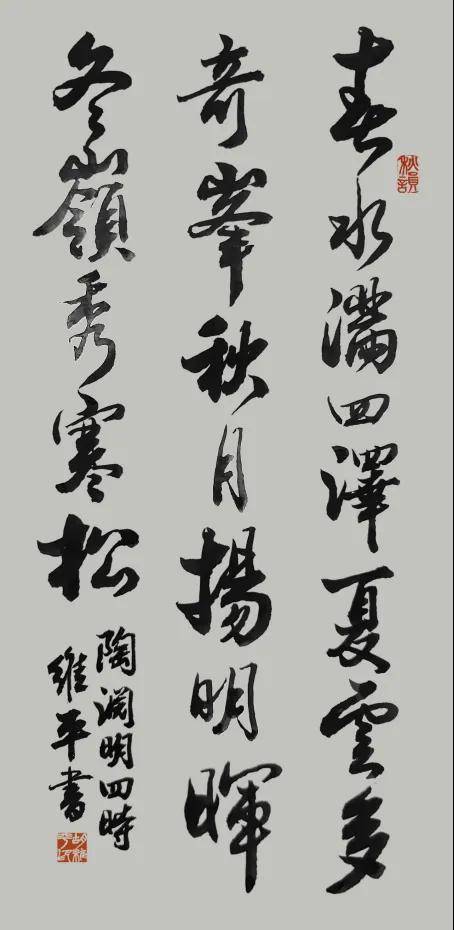 春水滿四澤夏雲多
奇峯秋月揚明暉
冬嶺秀寒松
陶淵明四時
維平書
秋韻